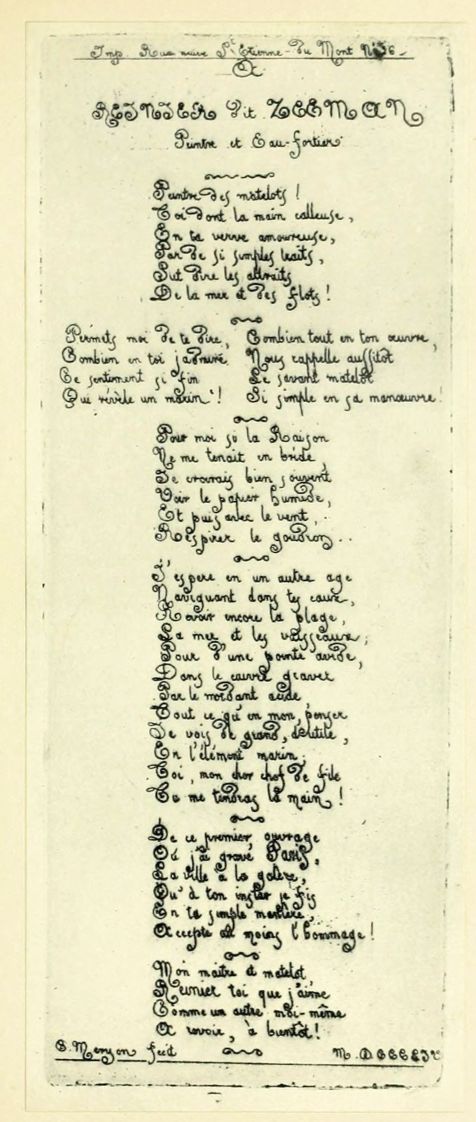 Imp. Rue neuve St Etienne-du Mont No 26-
A
REINIER dit ZEEMAN
Peintre et Eau-fortier
Peintre des matelots !
Toi dont la main calleuse,
En ta verve amoureuse,
Par de si simples traits,
Sut dire les attraits
De la mer et des flots !
Permets moi de te dire,
Combien en toi j'admire
Ce sentiment si fin
Qui révèle un marin !
Combien tout en ton œuvre,
Nous rappelle aussitot
Le savant matelot
Si simple en sa manœuvre!
Pour moi si la Raison
Ne me tenait en bride,
Je croirais bien souvent
Voir le papier humide,
Et puis avec le vent,
Respirer le goudron..
J'espere en un autre age
Naviguant dans tes eaux,
Revoir encore la plage,
La mer et les vaisseaux;
Pour d'une pointe avide,
Dans le cuivre graver
Par le mordant acide
Tout ce qu'en mon penser
Je vois de grand, d'utile,
En l'élément marin,
Toi, mon cher chef de file
Tu me tendras la main !
De ce premier ouvrage
Où j'ai gravé Paris,
La ville à la galère,
Qu'à ton instar je fis
En ta simple manière,
Accepte au moins l'hommage!
Mon maitre et matelot
Reinier toi que j'aime
Comme un autre moi-même
A revoir, à bientôt!
C. Meryon fecit